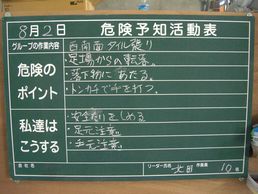 8月2日 危険予知活動表
グループの作業内容 西南面タイル張り
危険のポイント
・足場からの転落。
・落下物にあたる。
・トンカチで手を打つ。
私達はこうする
・安全帯をしめる
・足元注意。
・手元注意。
会社名 リーダー氏名 作業員 10名